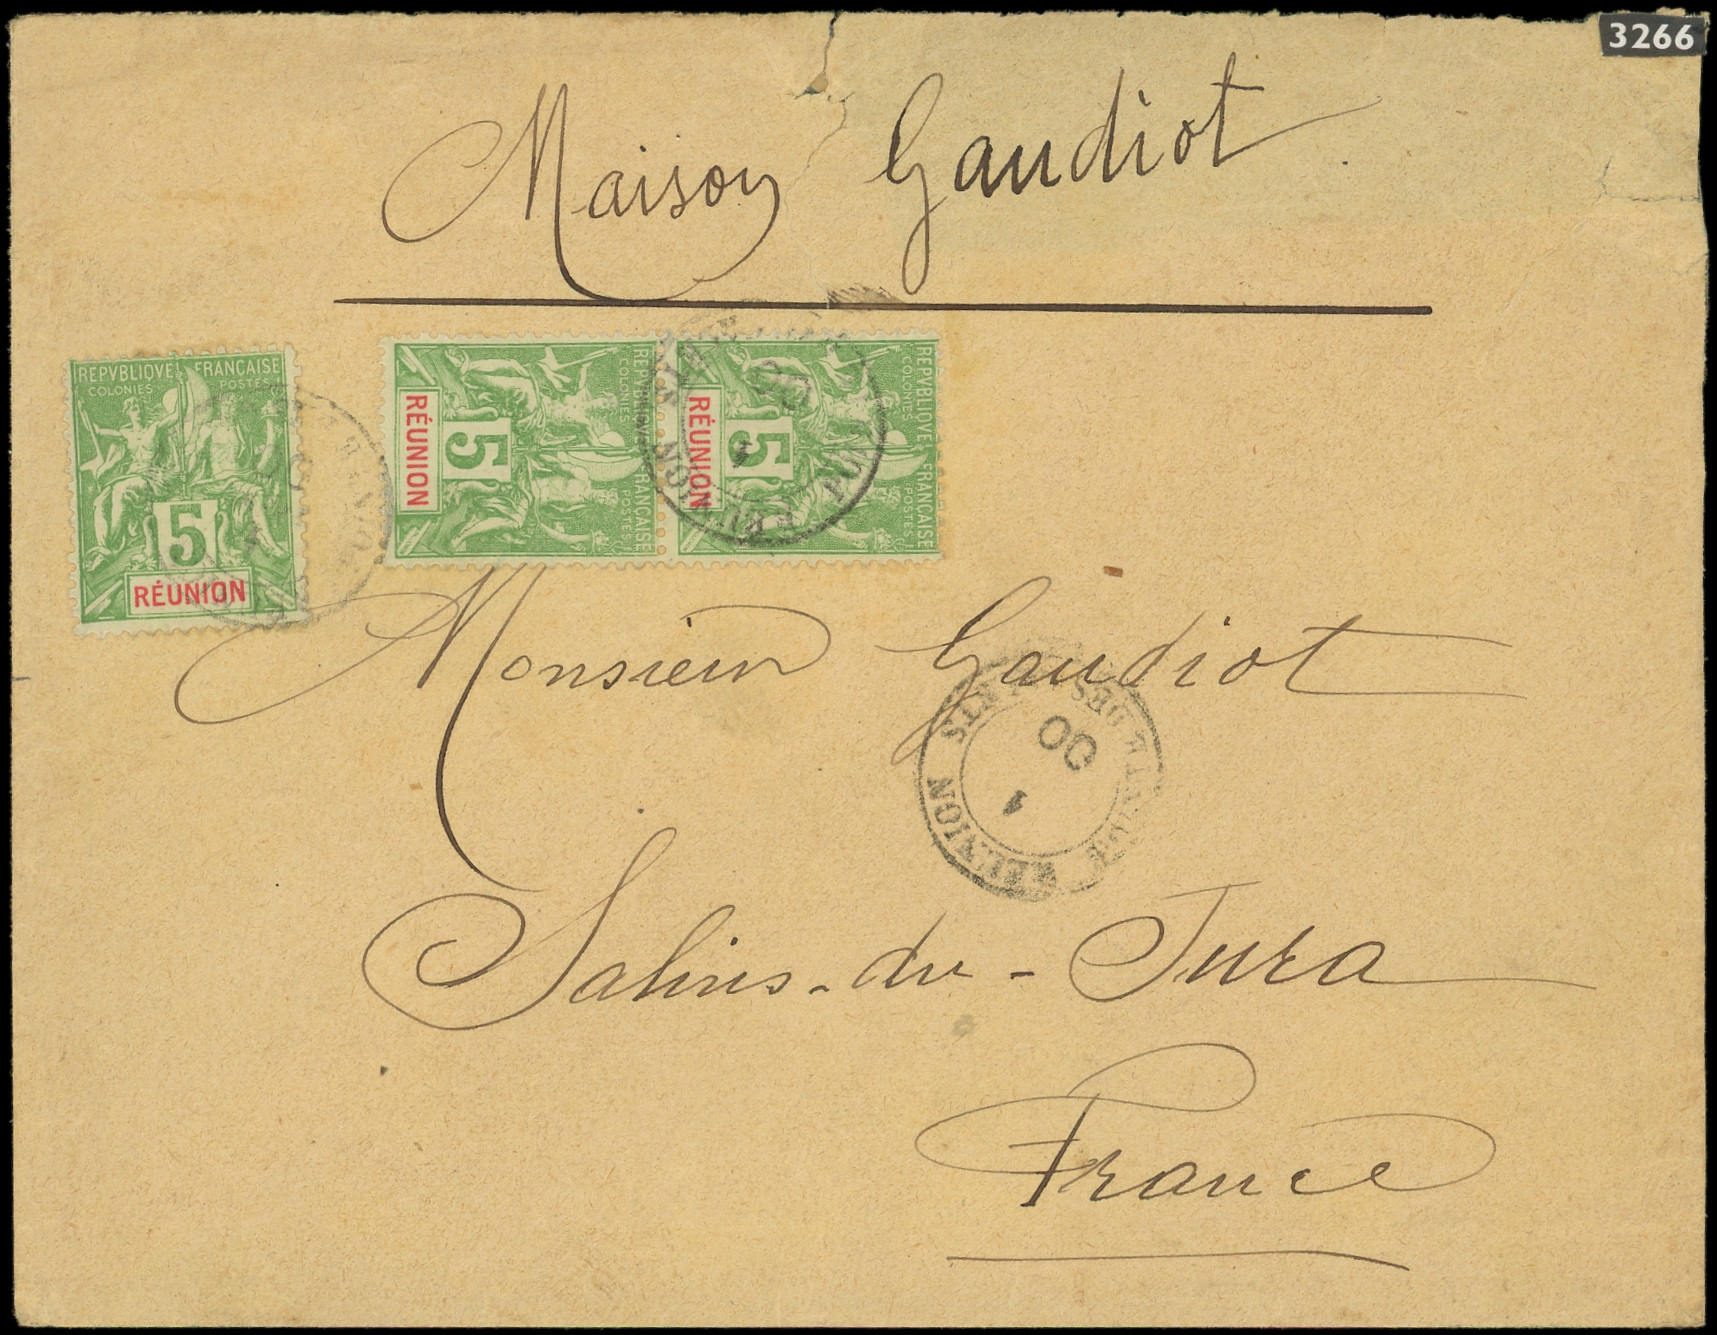 3266
Maison Gaudiot
REPVBLIQVE FRANÇAISE
COLONIES POSTES
5
RÉUNION
REPVBLIQVE FRANÇAISE
COLONIES POSTES
5
RÉUNION
REPVBLIQVE FRANÇAISE
COLONIES POSTES
5
RÉUNION
Monsieur Gaudiot
1
00
REUNION
Salins-du-Jura
France